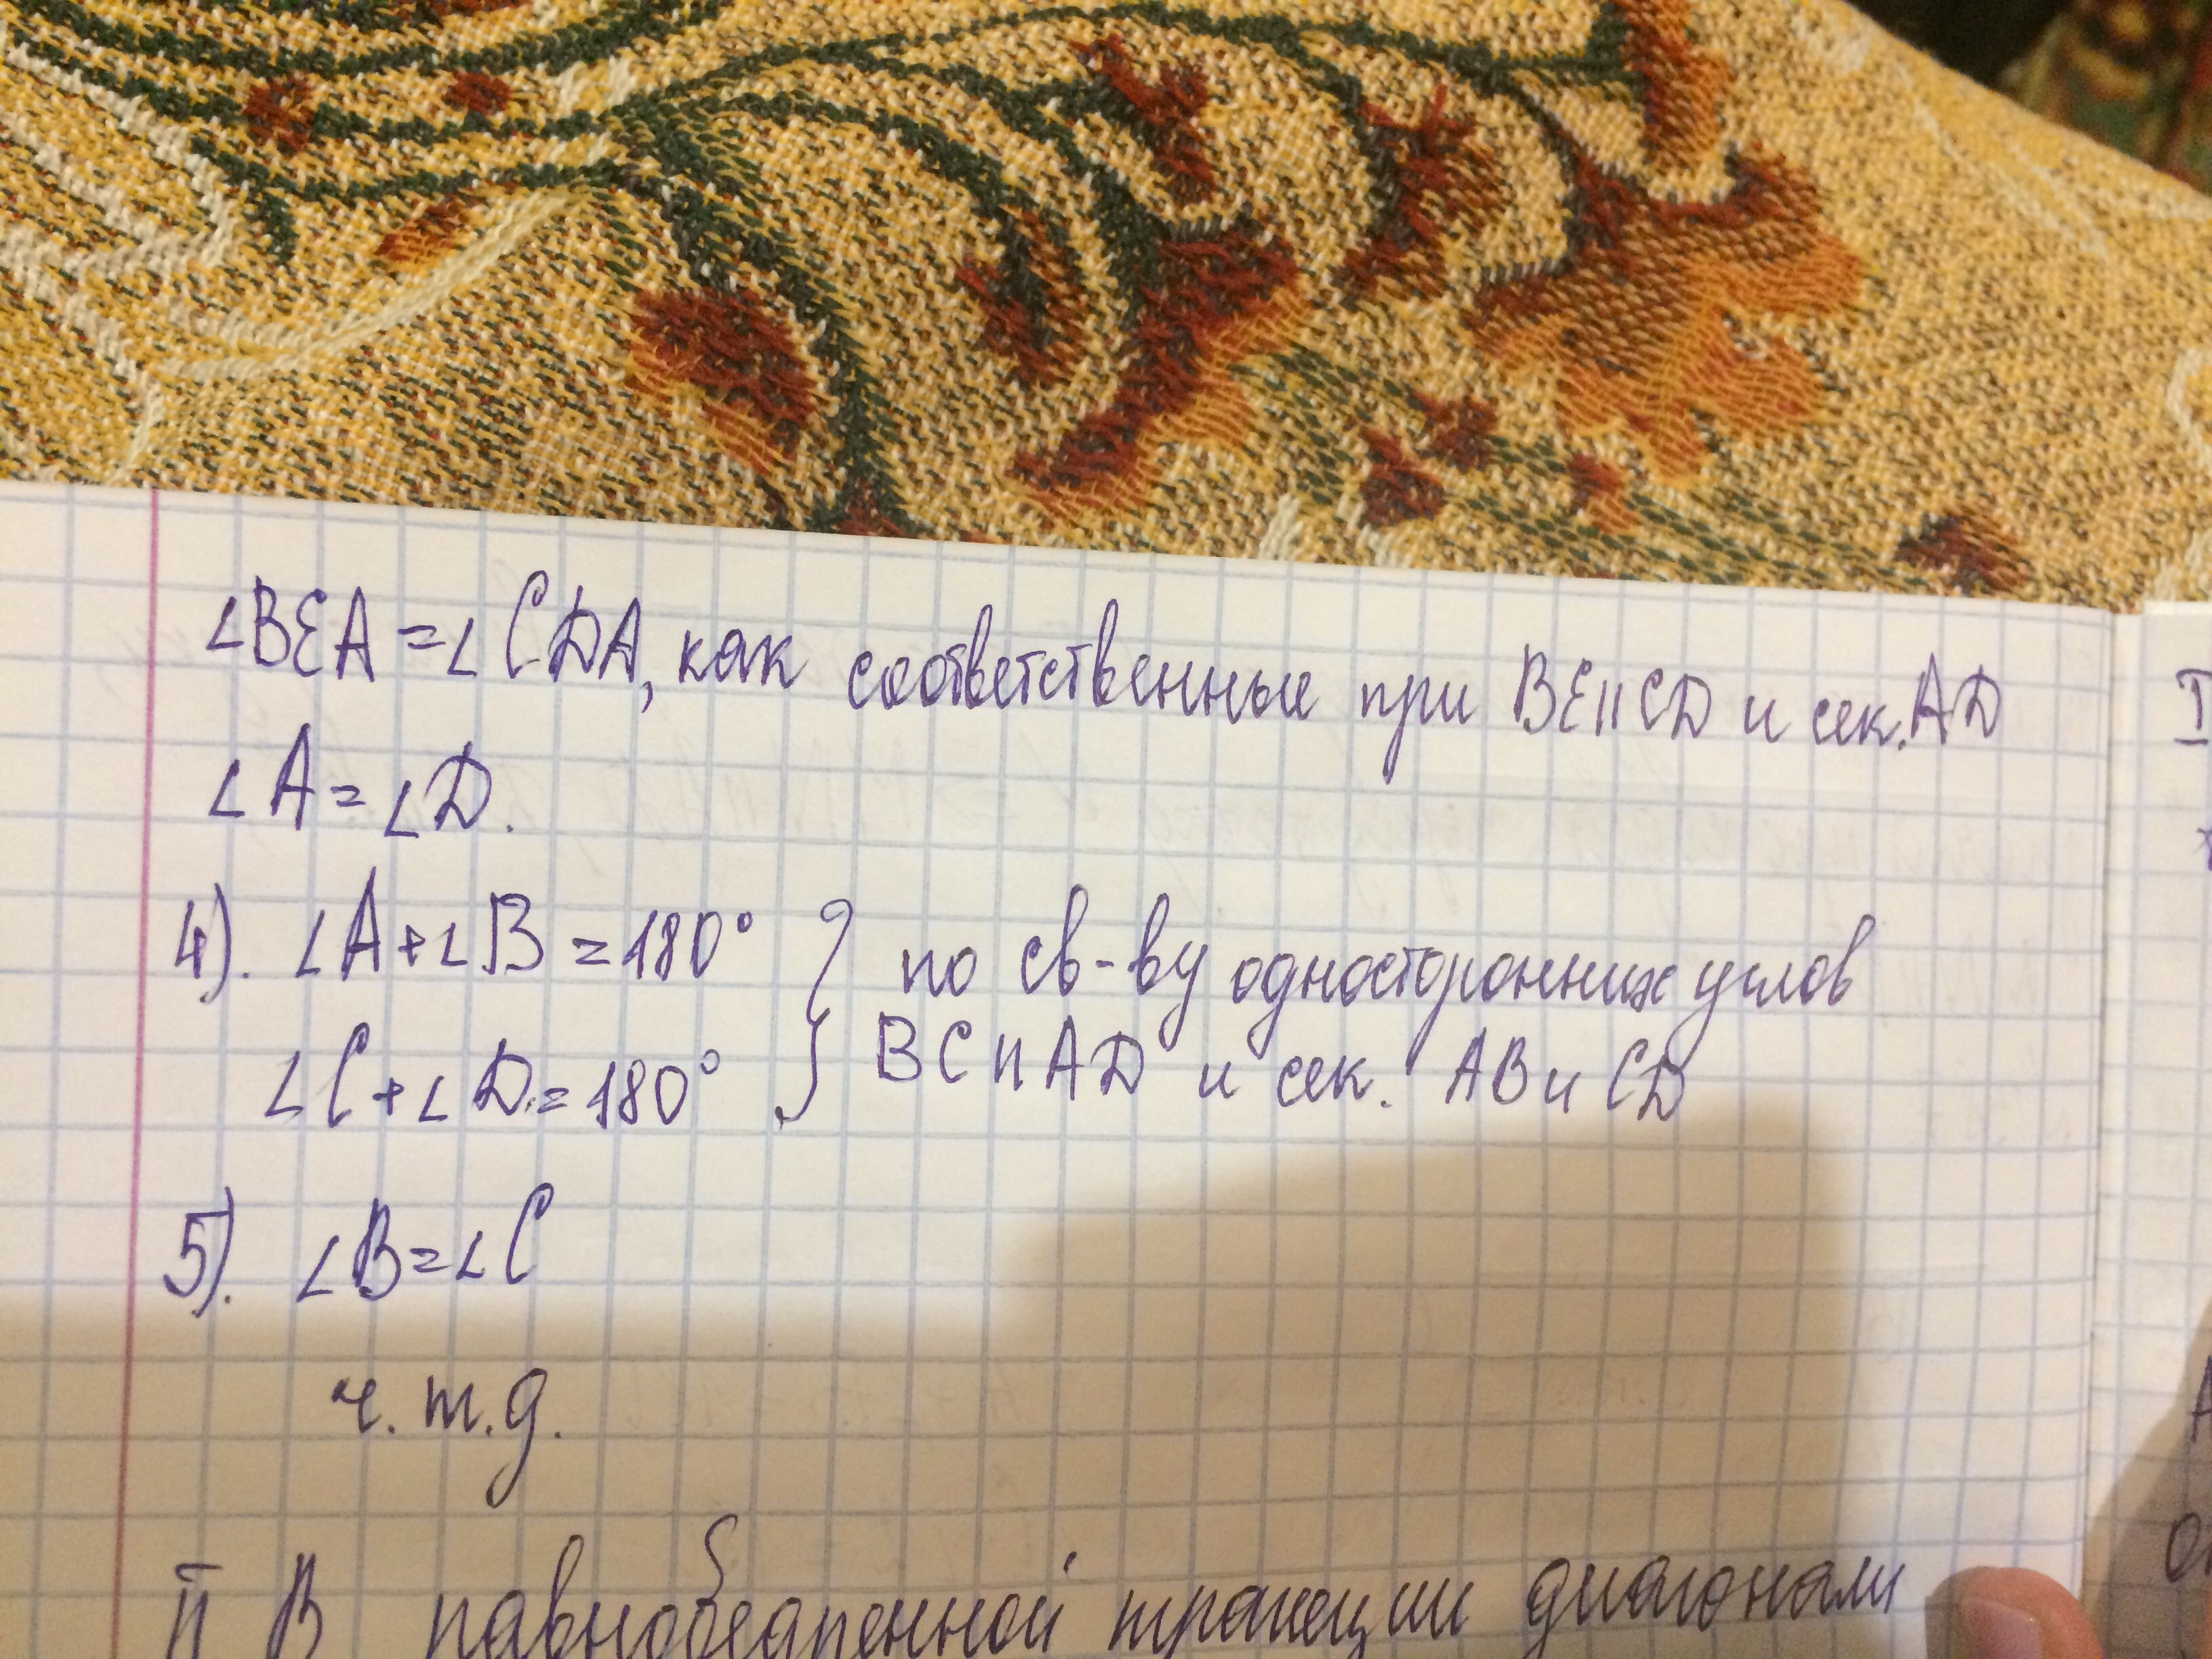 ∠BEA = ∠CDA, как соответственные при BE∥CD и сек. AD
∠A = ∠D.
4). ∠A + ∠B = 180° } по св-ву односторонних углов
∠C + ∠D = 180° BC ∥ AD и сек. AB и CD
5). ∠B = ∠C
ч. т. д.
II В равнобедренной трапеции диагонали